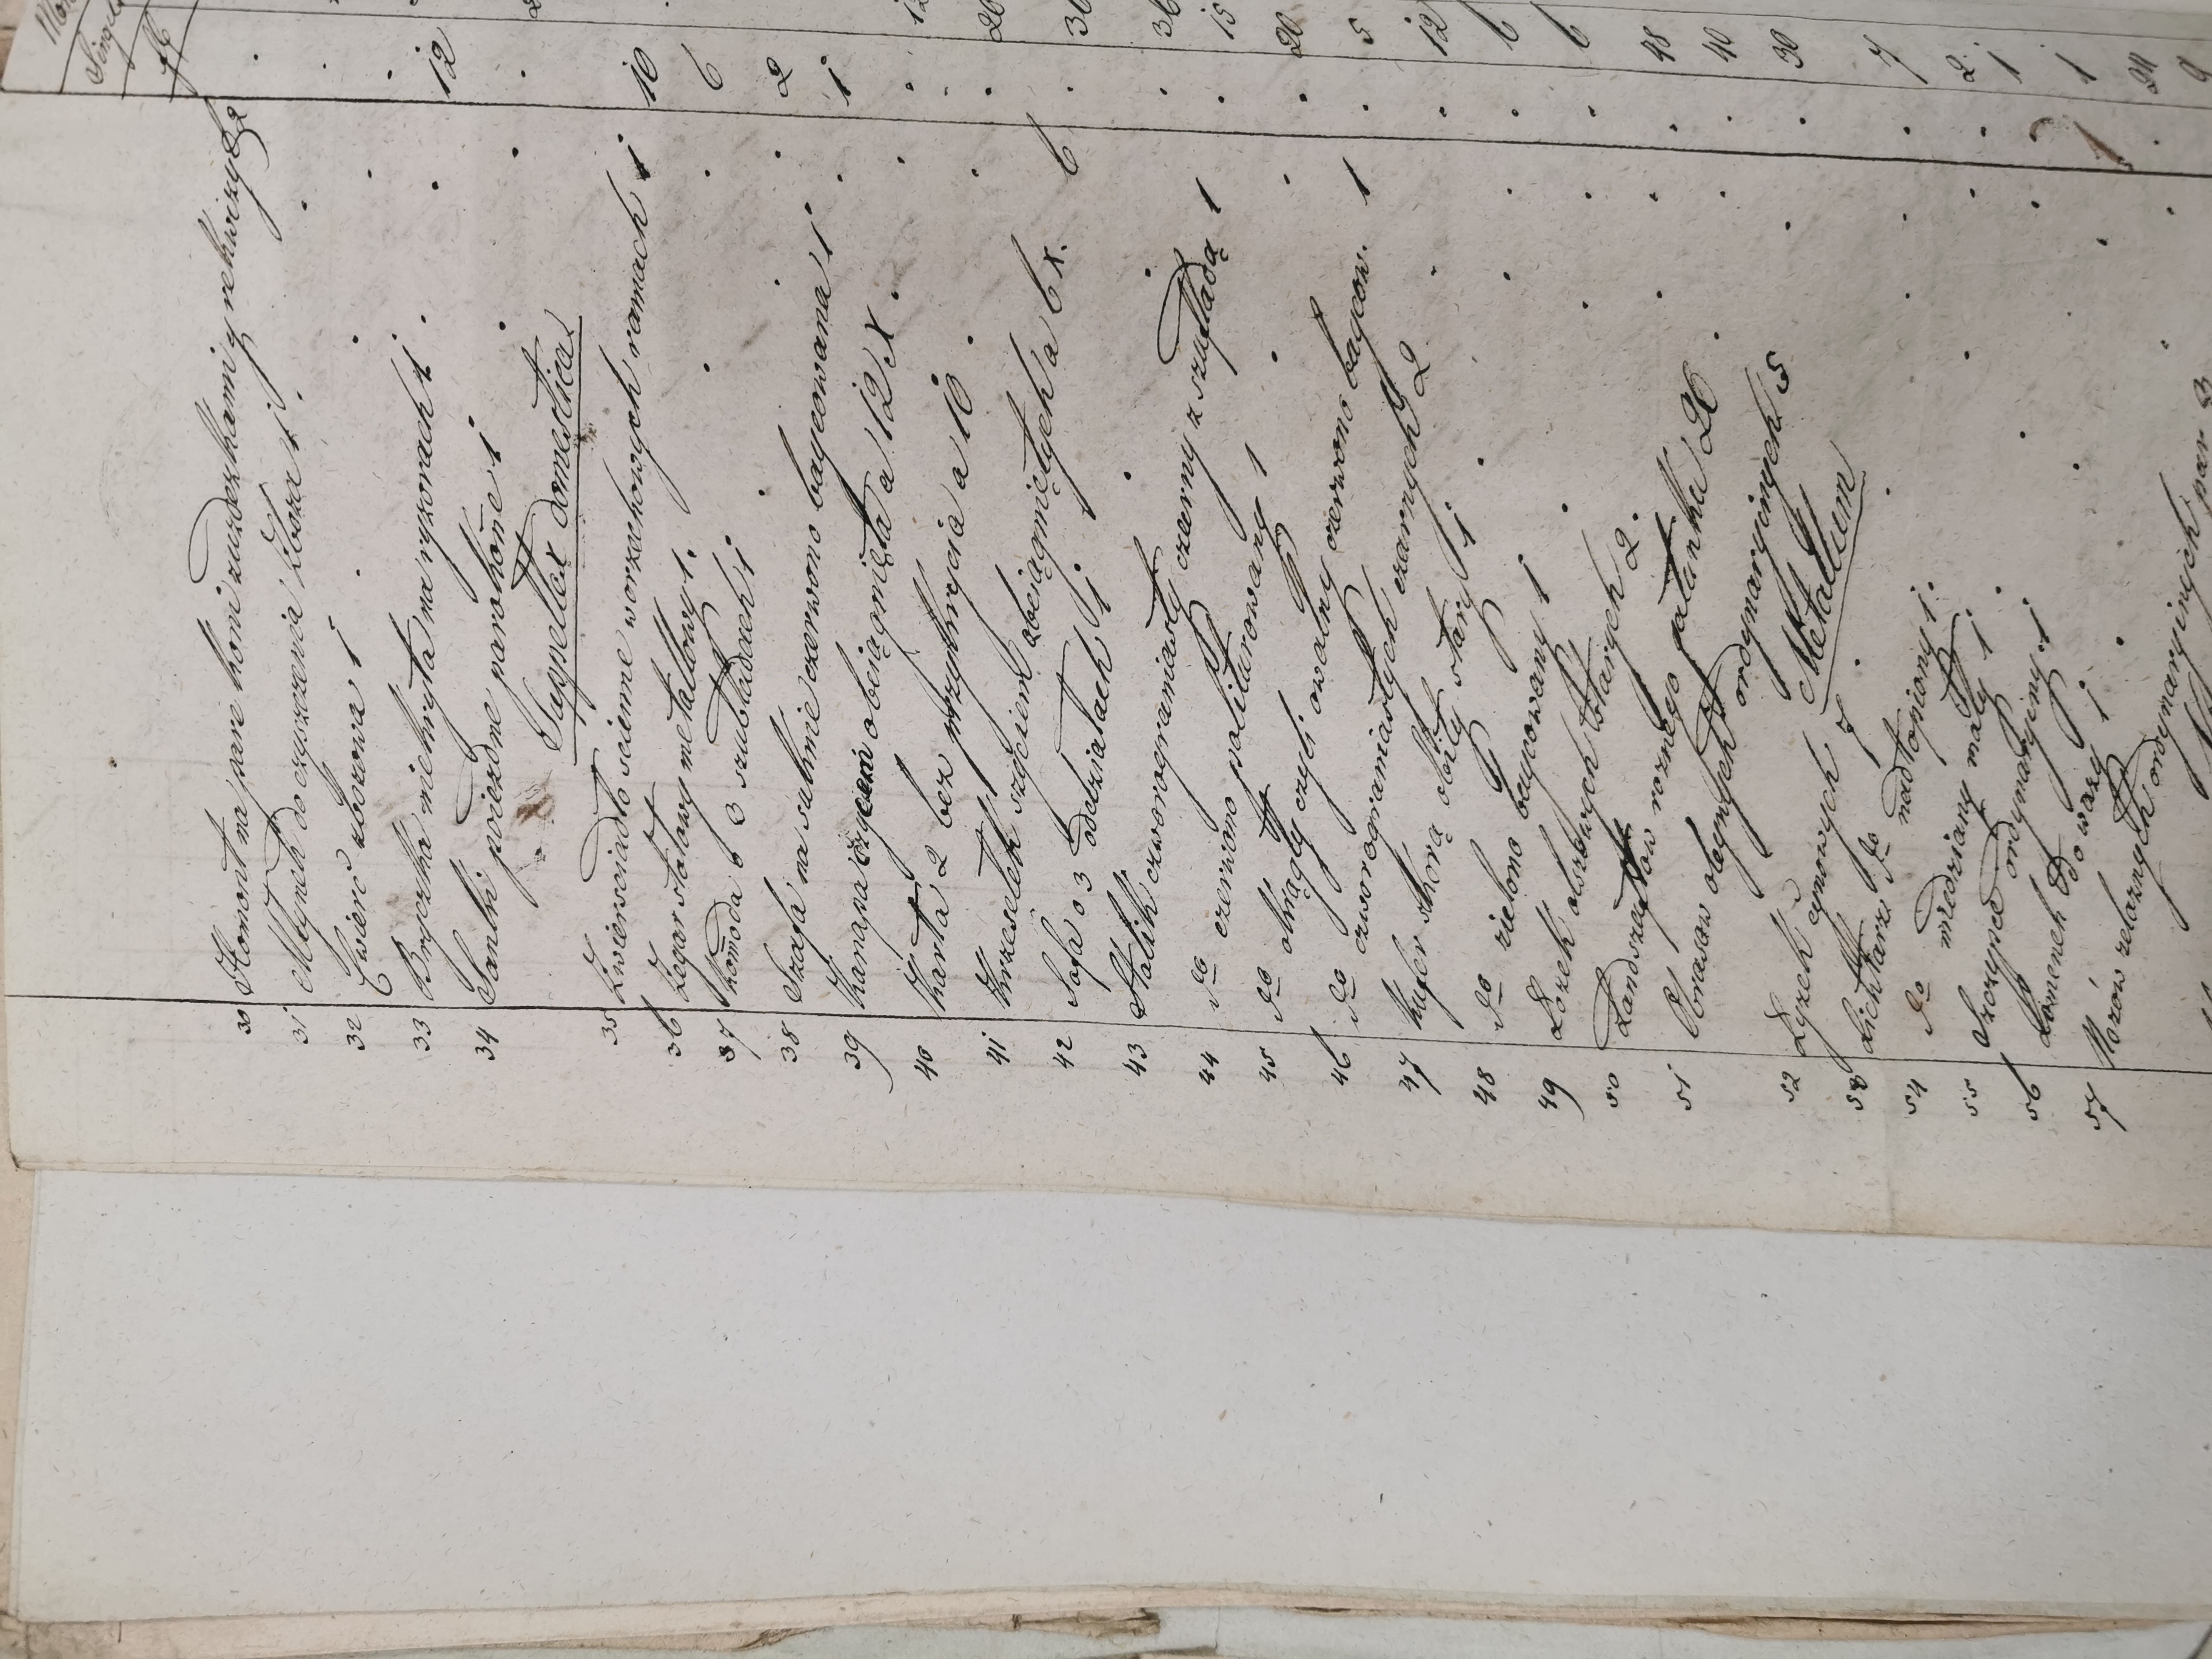 30 Homont na pare koni zuzdeczkami y rekwizyda
31 Młynek do czyszczenia zboza 1.
32 Cwierć zbozowa 1
33 Bryczka niekryta na ryzorach 1. 12
34 Sanki poiezdne parokoñe 1
Supellex domestica
35 Zwierciadło scienne worzechowych ramach 1 10
36 Zegar stołowy metallowy 1. 6
37 Komoda o 3 szubladach 1 2
38 Szafa na suknie czerwono baycowana 1 1
39 Kanapa obciągnięta a 12 X. 12
40 Kanta 2 bez przykrycia a 10 20
41 Krzesełek szyciem obciągniętych a 6 x. 6 36
42 Sofa o 3 oddziałach 1 36
43 Stolik czworograniasty czarny z szufladą 1 15
44 do czerwono politurowany 1 20
45 do okrągły czyli owalny czerwono baycow. 1 5
46 do czworograniastych czarnych 2 12
47 Kufer skorą obity stary 1 6
48 do zielono baycowany 1 6
49 Łozek olszowych starych 2. 48
50 Landszaftow roznego gatunku 20 40
51 Obrasow oleynych ordynaryinych 5 30
Metallum
52 Łyzek cynowych 7 7
53 Lichtarz do nadtopiony 1. 2
54 do miedziany mały 1 1
55 Szczypce ordynaryiny 1 1
56 do wazy 1 24
57 Nozów zelaznych ordynaryinych par 3